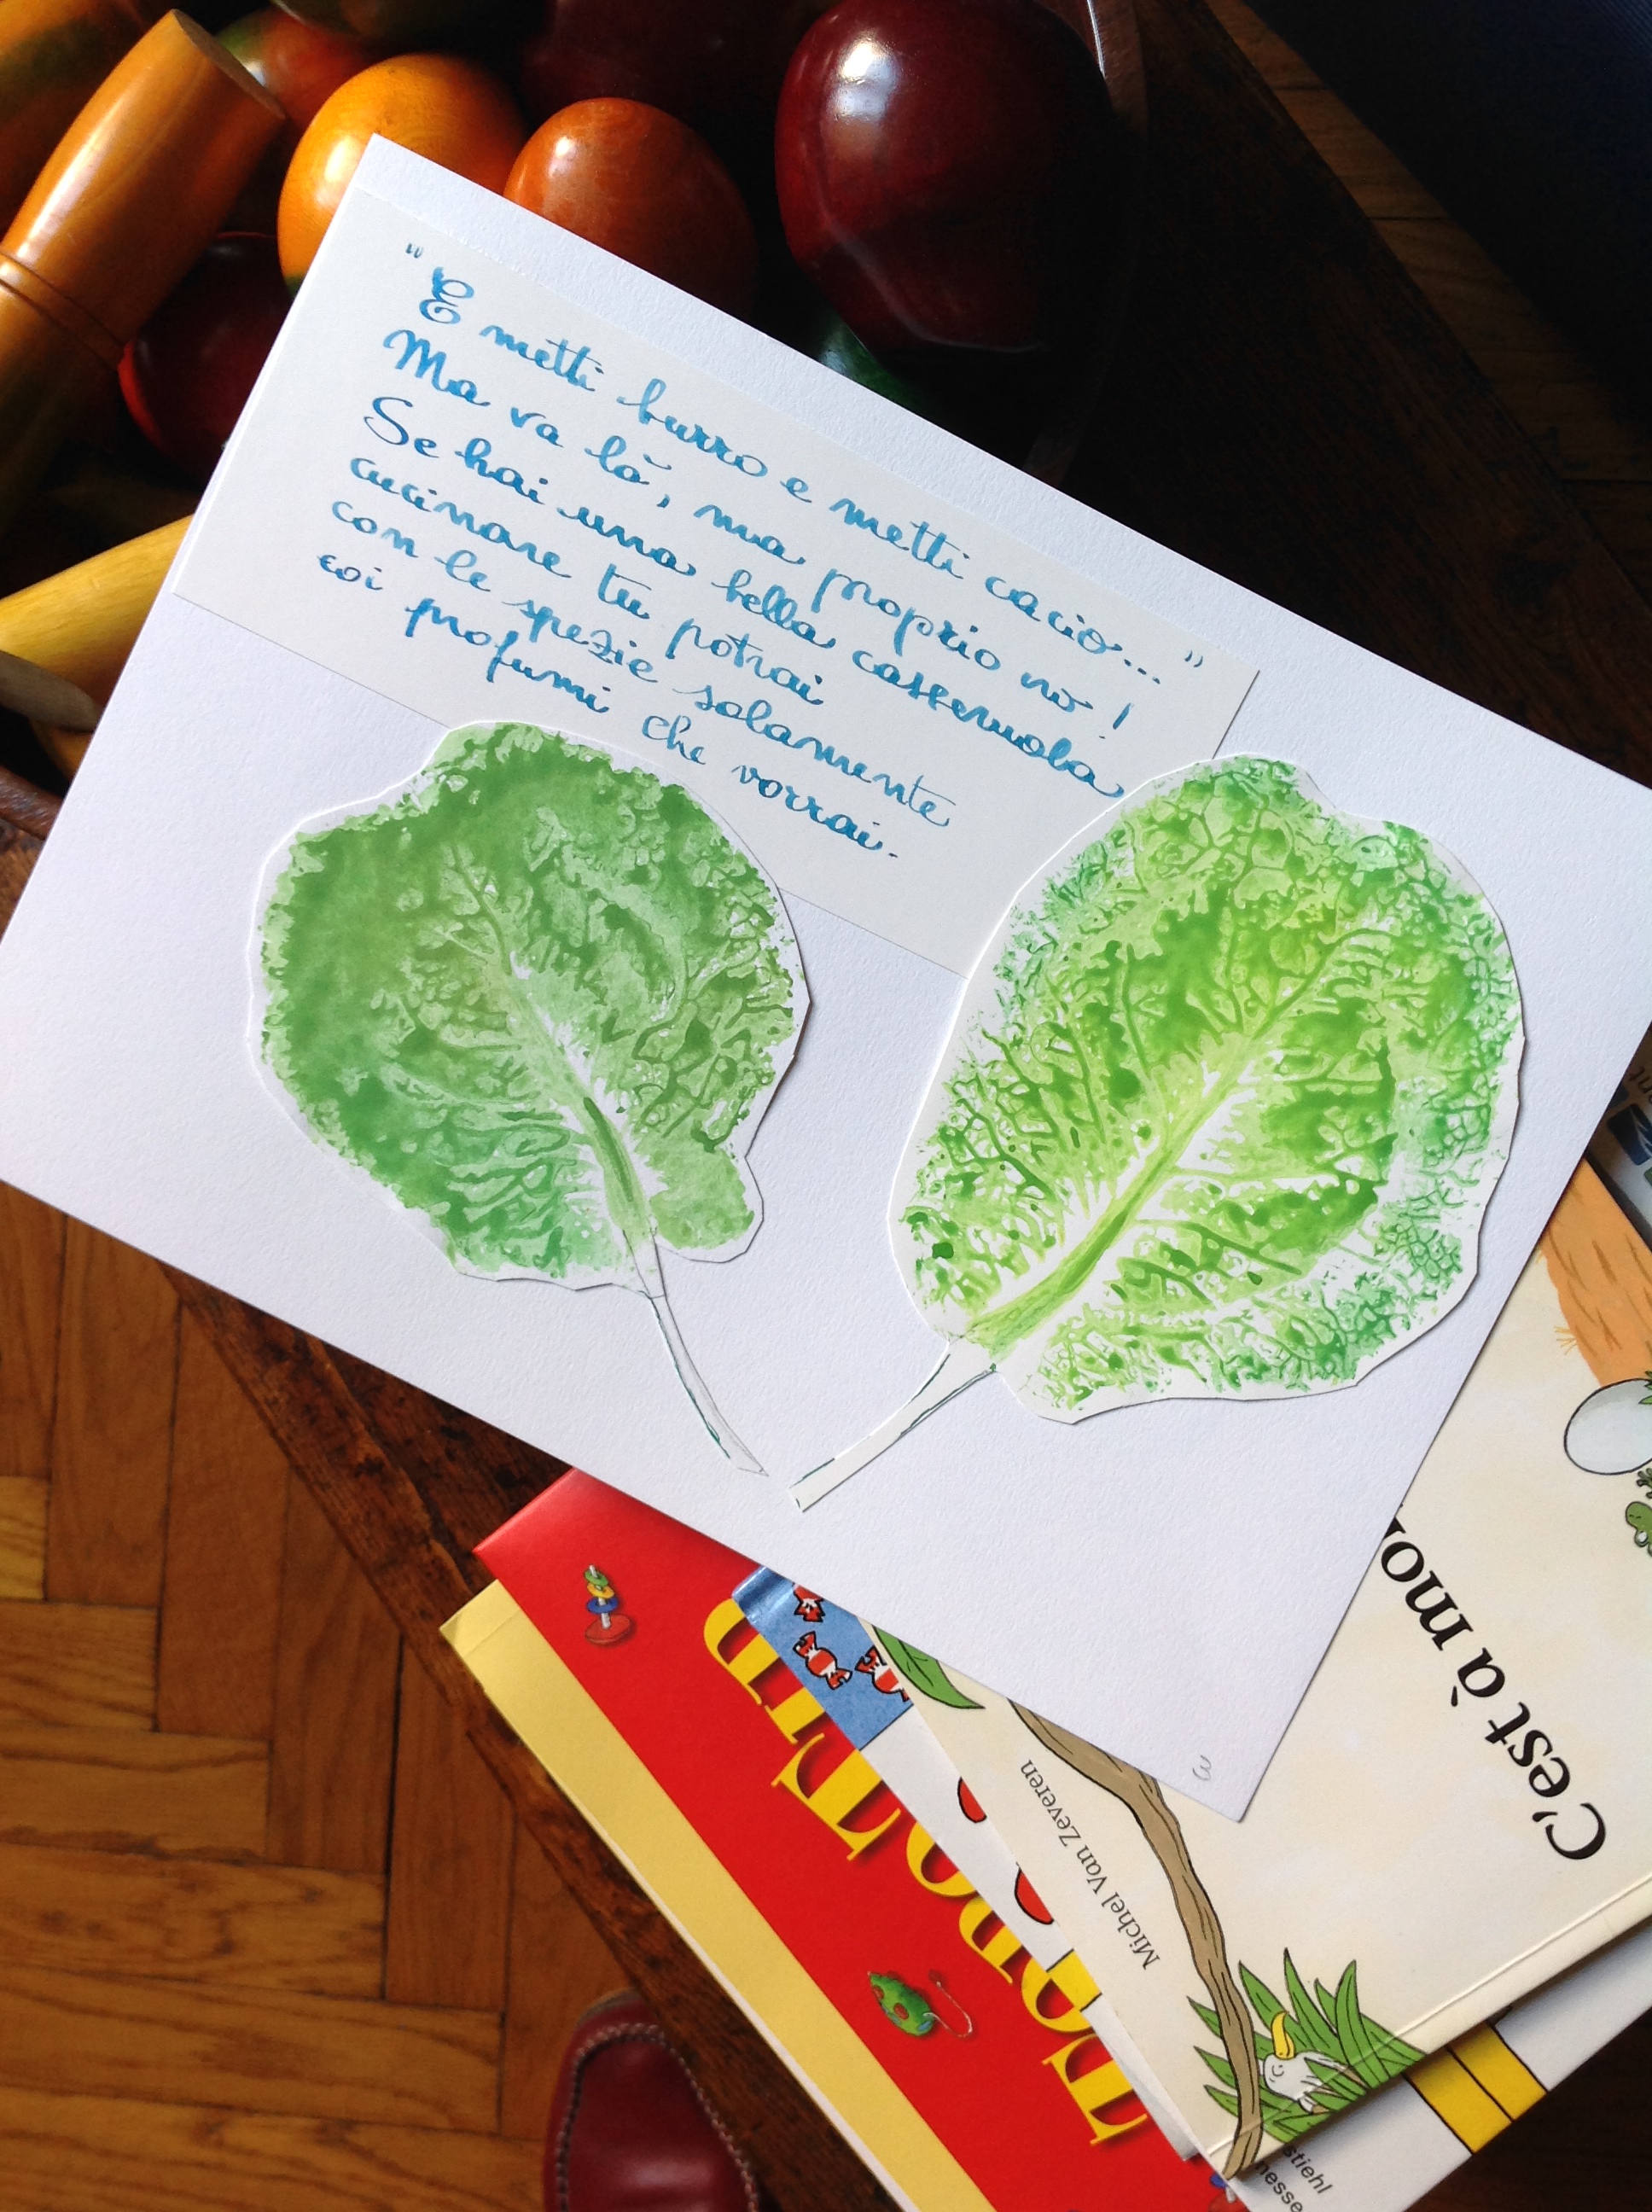 "E metti burro e metti cacio..."
Ma va là, ma proprio no!
Se hai una bella casseruola
cucinare tu potrai
con le spezie solamente
coi profumi che vorrai.
3
C'est à moi
Michel Van Zeveren